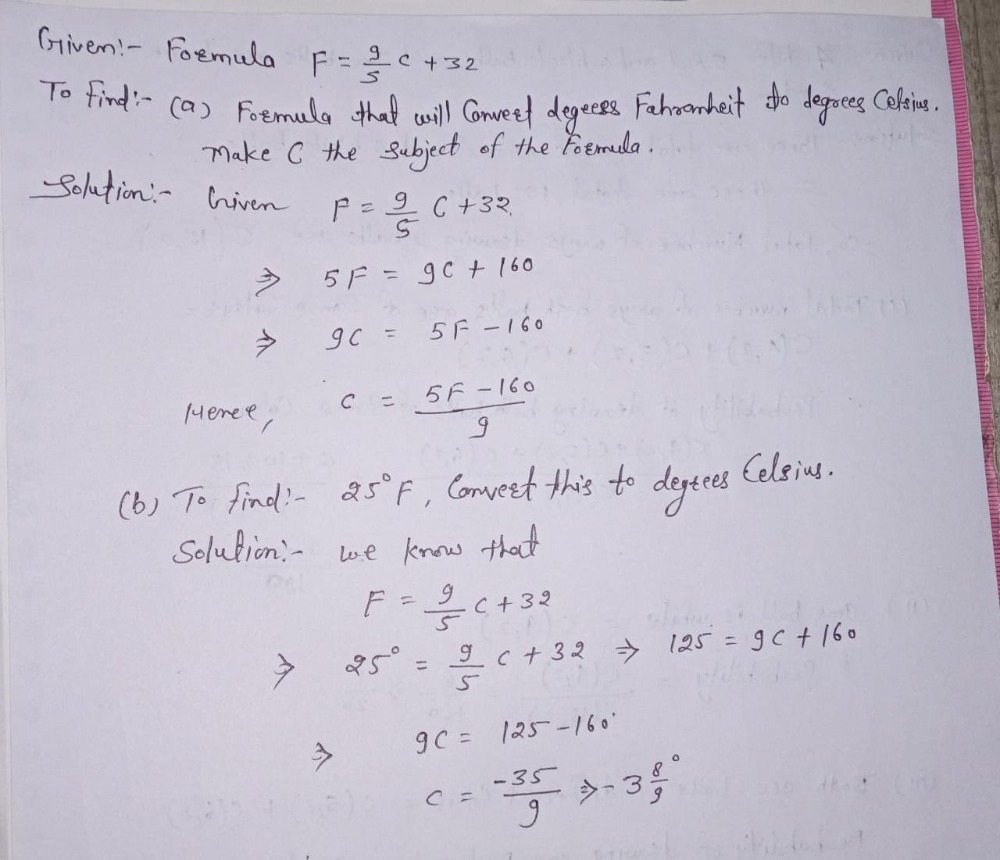 Given:- Formula F = 9/5 C + 32
To find:- (a) Formula that will Convert degrees Fahranheit to degrees Celsius.
Make C the subject of the Formula.
Solution:- Given F = 9/5 C + 32
⇒ 5F = 9C + 160
⇒ 9C = 5F - 160
Hence, C = (5F - 160)/9
(b) To find:- 25°F, Convert this to degrees Celsius.
Solution:- we know that
F = 9/5 C + 32
⇒ 25° = 9/5 C + 32 ⇒ 125 = 9C + 160
⇒ 9C = 125 - 160
C = -35/9 ⇒ -3 8/9°